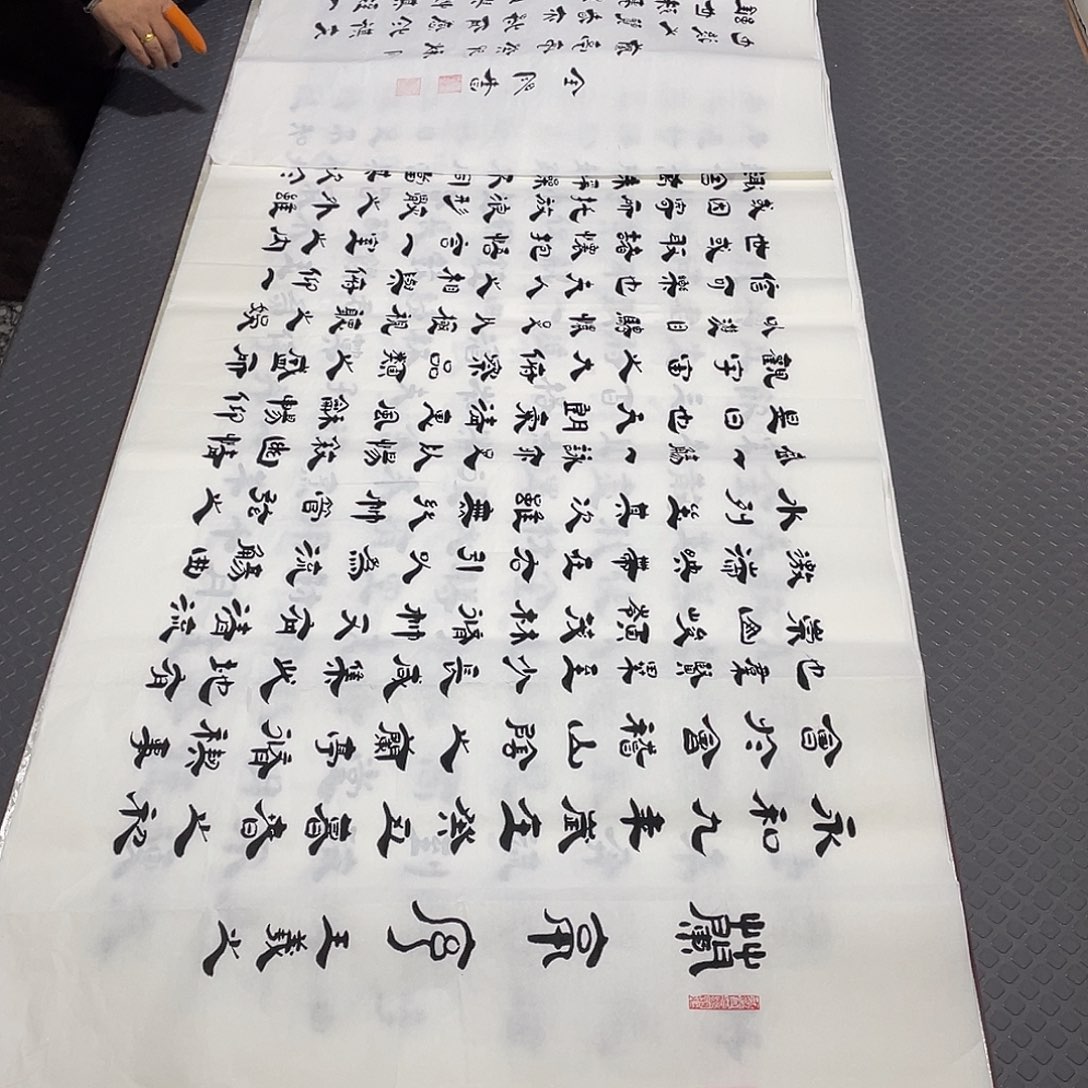 蘭亭序 王羲之
永和九年歲在癸丑暮春之初
會於會稽山陰之蘭亭脩禊事
也羣賢畢至少長咸集此地有
崇山峻領茂林脩竹又有清流
激湍映帶左右引以為流觴曲
水列坐其次雖無絲竹管弦之
盛一觴一詠亦足以暢敘幽情
是日也天朗氣清惠風和暢仰
觀宇宙之大俯察品類之盛所
以遊目騁懷足以極視聽之娛
信可樂也夫人之相與俯仰一
世或取諸懷抱悟言一室之內
或因寄所託放浪形骸之外雖
趣舍萬殊靜躁不同當其欣於
書